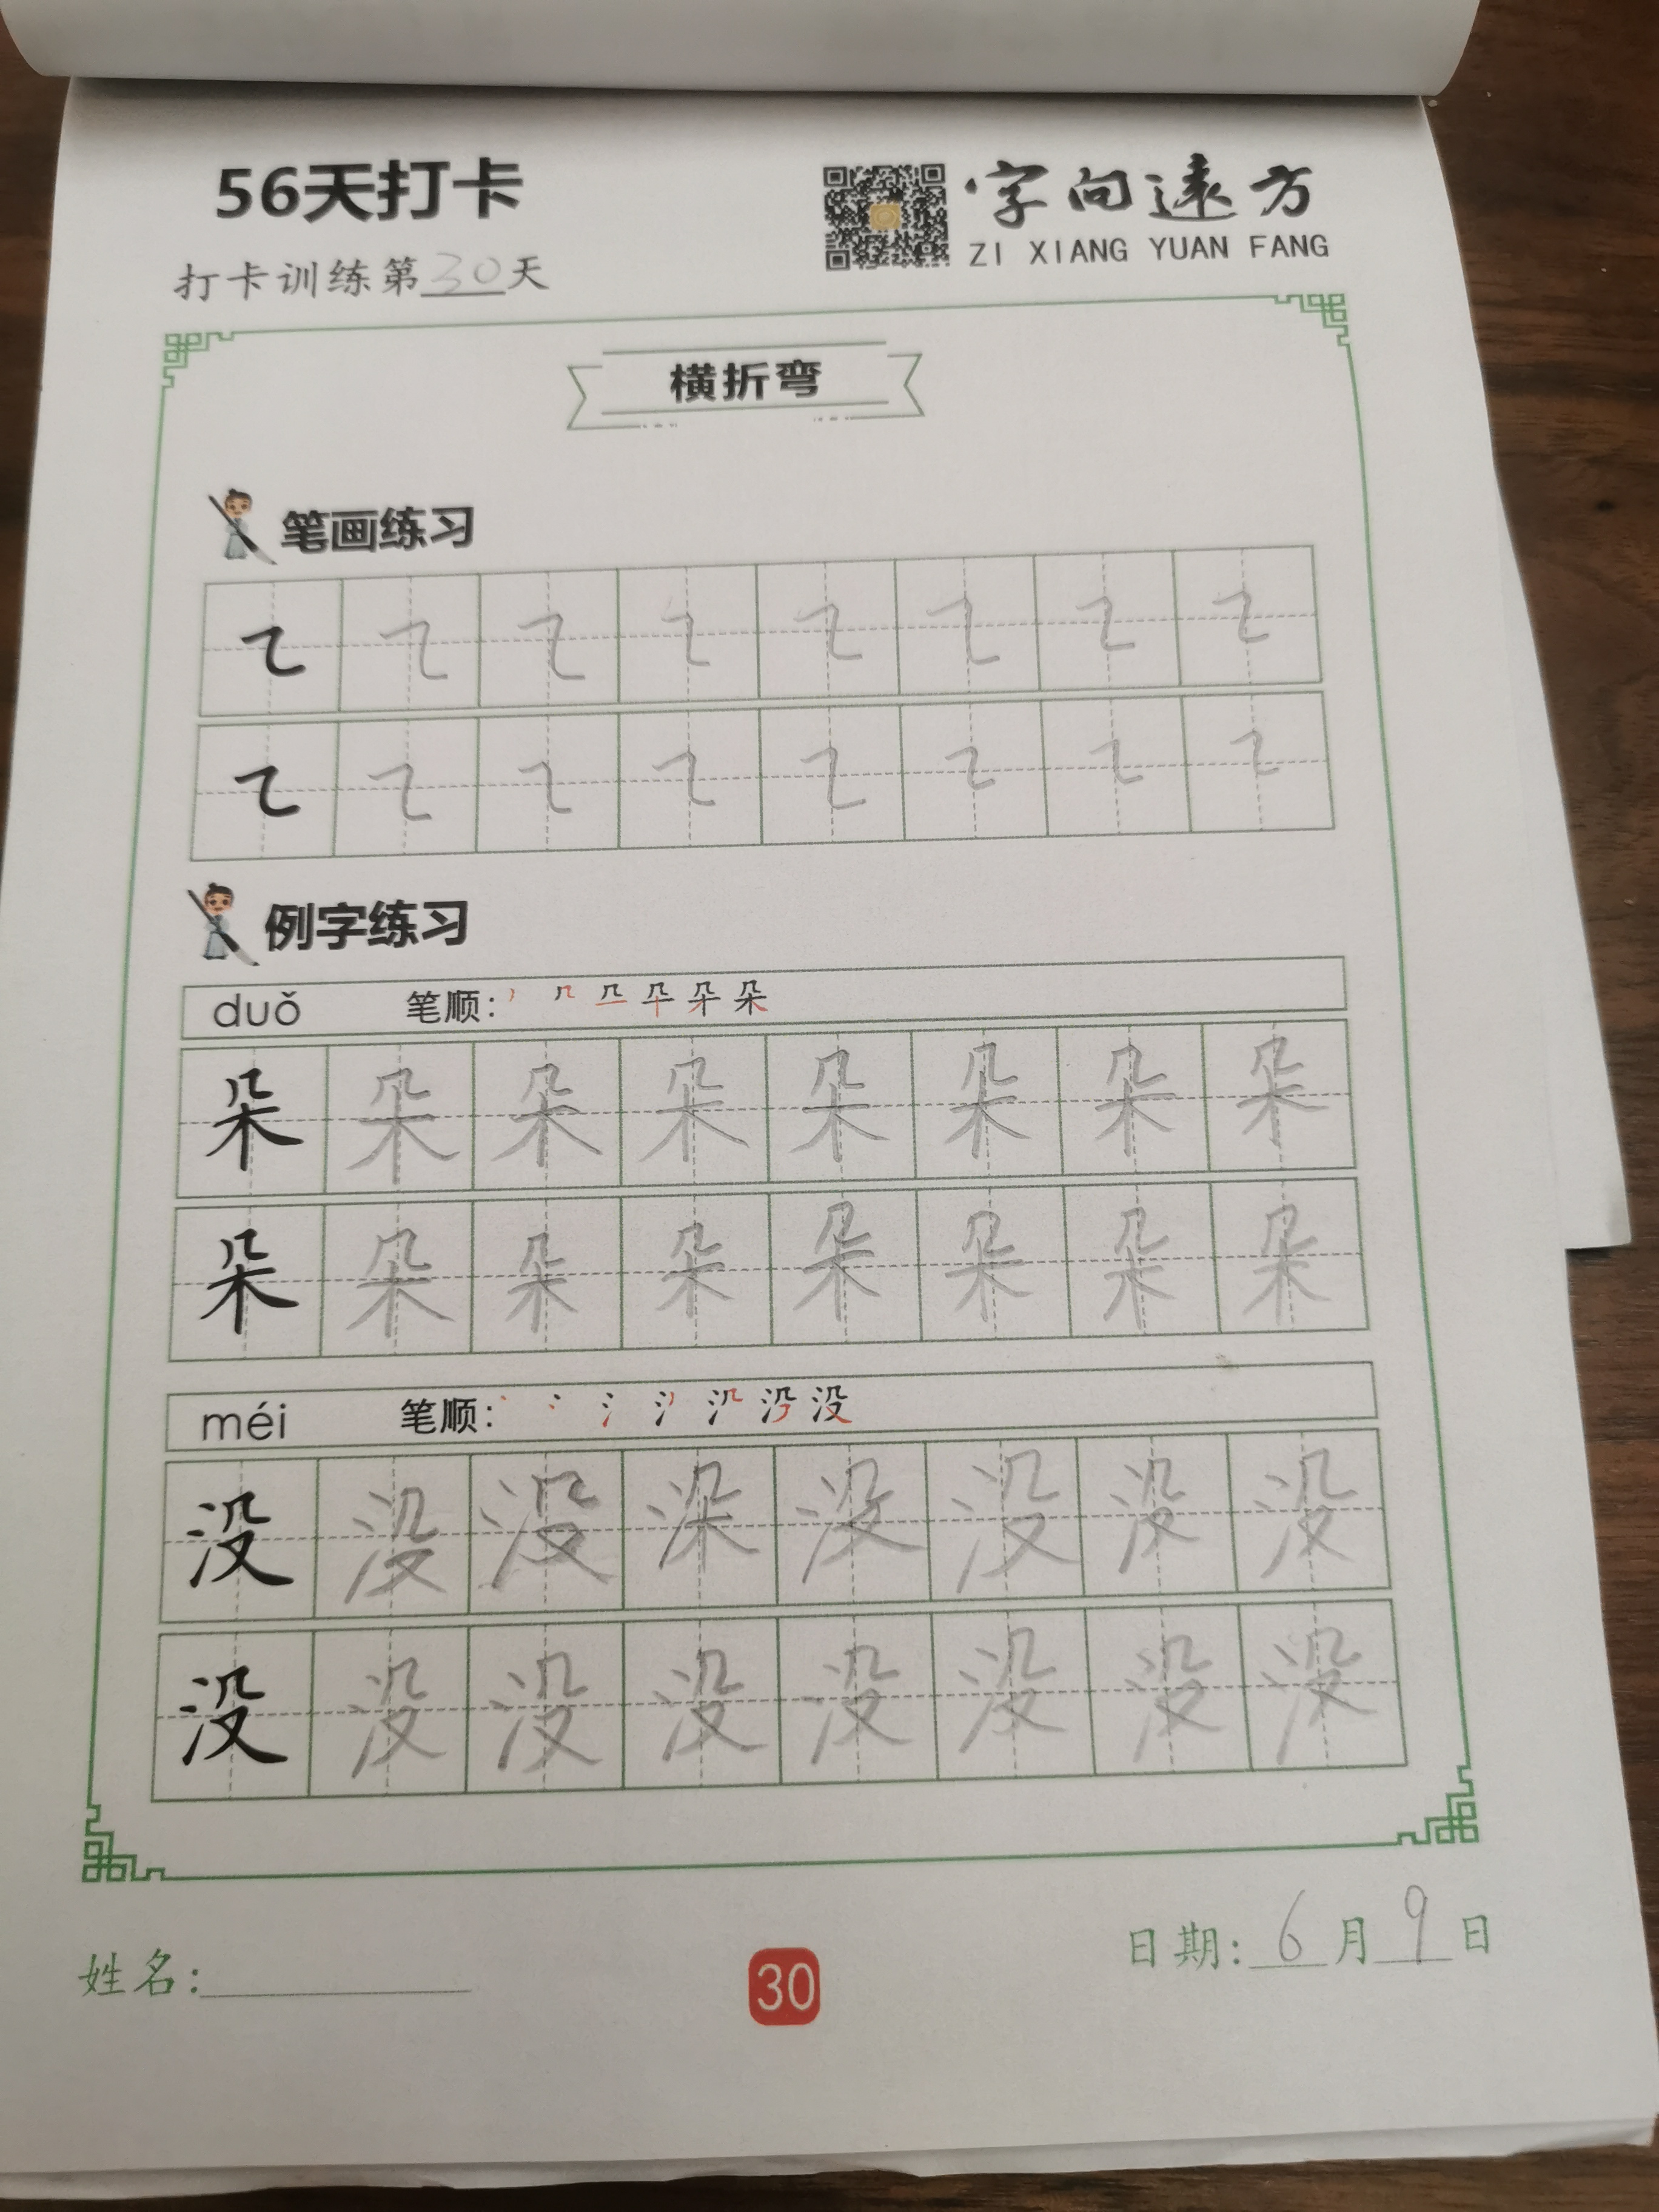 56天打卡
字向遠方
ZI XIANG YUAN FANG
打卡训练第30天
横折弯
笔画练习
㇍ ㇍ ㇍ ㇍ ㇍ ㇍ ㇍ ㇍
㇍ ㇍ ㇍ ㇍ ㇍ ㇍ ㇍ ㇍
例字练习
duǒ 笔顺: 朵
朵 朵 朵 朵 朵 朵 朵 朵
朵 朵 朵 朵 朵 朵 朵 朵
méi 笔顺: 没
没 没 没 没 没 没 没
没 没 没 没 没 没 没 没
姓名:
30
日期: 6月9日